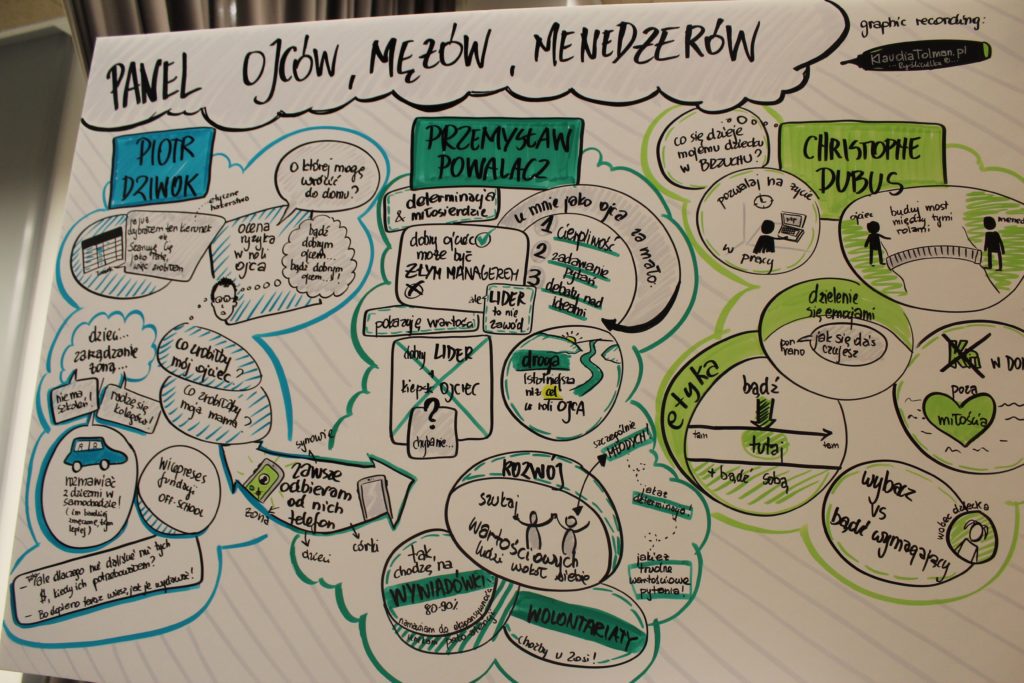 PANEL OJCÓW, MĘŻÓW, MENEDŻERÓW
graphic recording:
KlaudiaTolman.pl
PIOTR
DZIWOK
O której mogę
wrócić
do domu?
ocena
ryzyka
w roli
ojca
bądź
dobrym
ojcem...
bądź dobrym
ojcem...!
dzieci...
zarządzanie
żoną...
nie ma
szkoleń!
radzę się
kolegów!
co zrobiłby
mój ojciec?
co zrobiłaby
moja mama?
rozmawiać
z dziećmi w
samochodzie!
(im bardziej
zmęczone, tym
lepiej)
wiceprezes
fundacji
OFF-SCHOOL
- Ale dlaczego nie daliście mi tych
$, kiedy ich potrzebowałem?
- Bo dopiero teraz wiesz, jak je wydawać!
synowie
zawsze
odbieram
od nich
telefon
żona
dzieci
córki
PRZEMYSŁAW
POWAŁACZ
determinacja
& miłosierdzie
dobry ojciec
może być
ZŁYM MANAGEREM
ale
LIDER
to nie
zawód
pokazuję wartości
dobry LIDER
kiepski OJCIEC
?
chybanie...
u mnie jako ojca
za mało:
1 cierpliwość
2 zadawanie
pytań
3 debaty nad
ideałami
droga
istotniejsza
niż cel
w roli OJCA
ROZWÓJ
szukaj
wartościowych
ludzi wokół siebie
szczególnie
MŁODYCH!
jakieś
trudne
wartościowe
pytania!
tak,
chodzę na
WYWIADÓWKI
80-90%
WOLONTARIATY
choćby u Zosi!
CHRISTOPHE
DUBUS
co się dzieje
mojemu dziecku
w BRZUCHU?
pozwalaj na życie
w pracy
ojciec
buduj most
między tymi
rolami
dzielenie
się emocjami
jak się dziś
czujesz
etyka
bądź
tam
tutaj
tem
+ bądź sobą
w DOM
poza
miłością
wybacz
vs
bądź wymagający
wobec dziecka